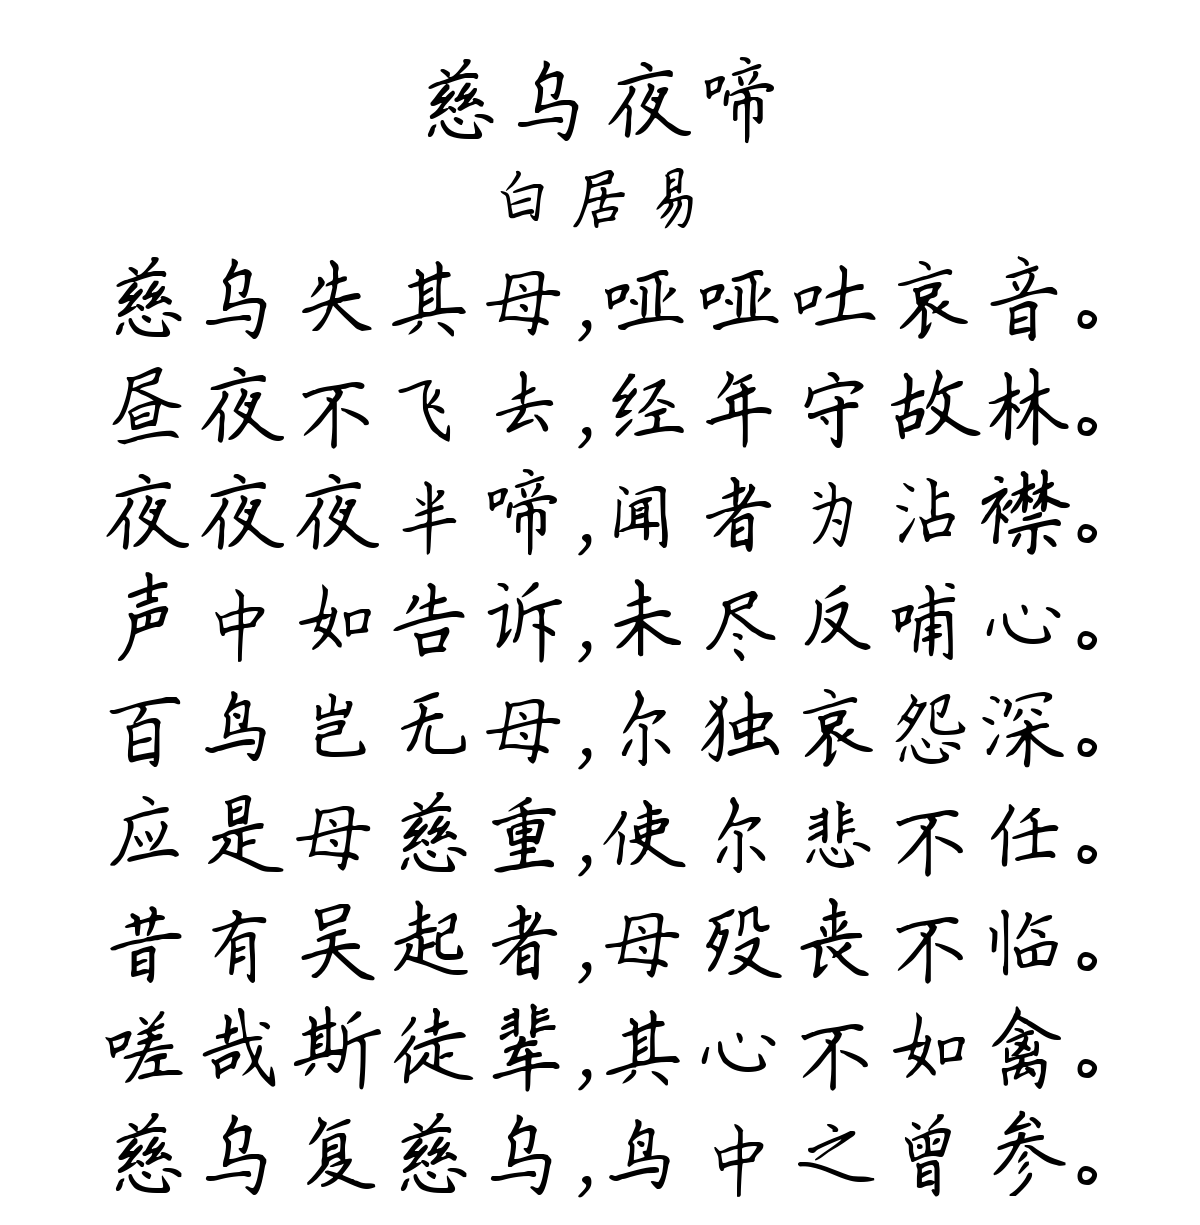 慈乌夜啼
白居易
慈乌失其母,哑哑吐哀音。
昼夜不飞去,经年守故林。
夜夜夜半啼,闻者为沾襟。
声中如告诉,未尽反哺心。
百鸟岂无母,尔独哀怨深。
应是母慈重,使尔悲不任。
昔有吴起者,母殁丧不临。
嗟哉斯徒辈,其心不如禽。
慈乌复慈乌,鸟中之曾参。